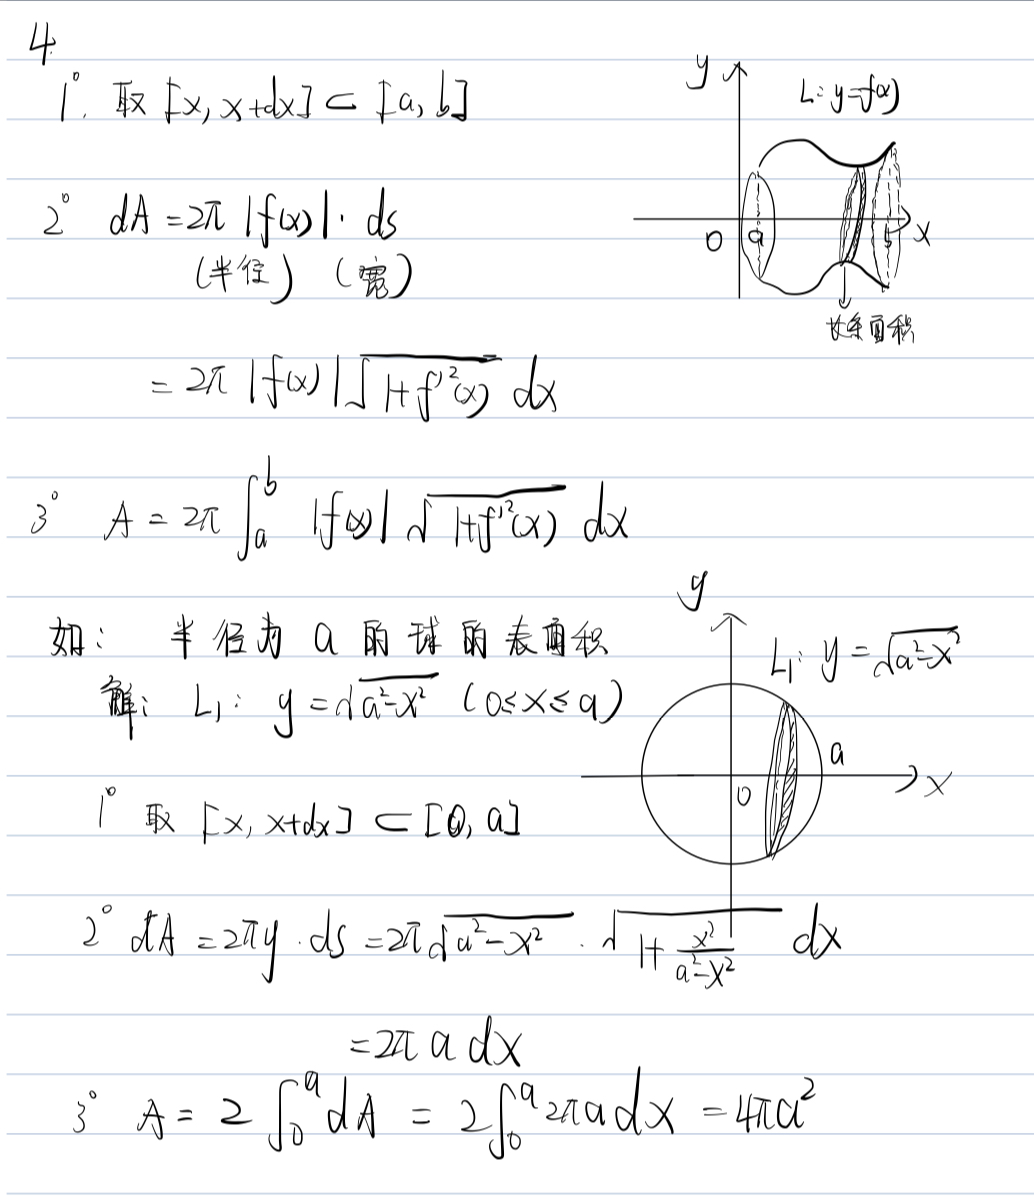 4
1° 取 [x, x+dx] ⊂ [a, b]
y
L: y=f(x)
0 a b x
长条面积
2° dA = 2π |f(x)| · ds
(半径) (宽)
= 2π |f(x)| √(1+f'²(x)) dx
3° A = 2π ∫_a^b |f(x)| √(1+f'²(x)) dx
如: 半径为 a 的球的表面积
解: L₁: y = √(a²-x²) (0≤x≤a)
y
L₁: y = √(a²-x²)
a
0 x
1° 取 [x, x+dx] ⊂ [0, a]
2° dA = 2πy · ds = 2π√(a²-x²) · √(1+x²/(a²-x²)) dx
= 2π a dx
3° A = 2 ∫_0^a dA = 2 ∫_0^a 2πa dx = 4πa²